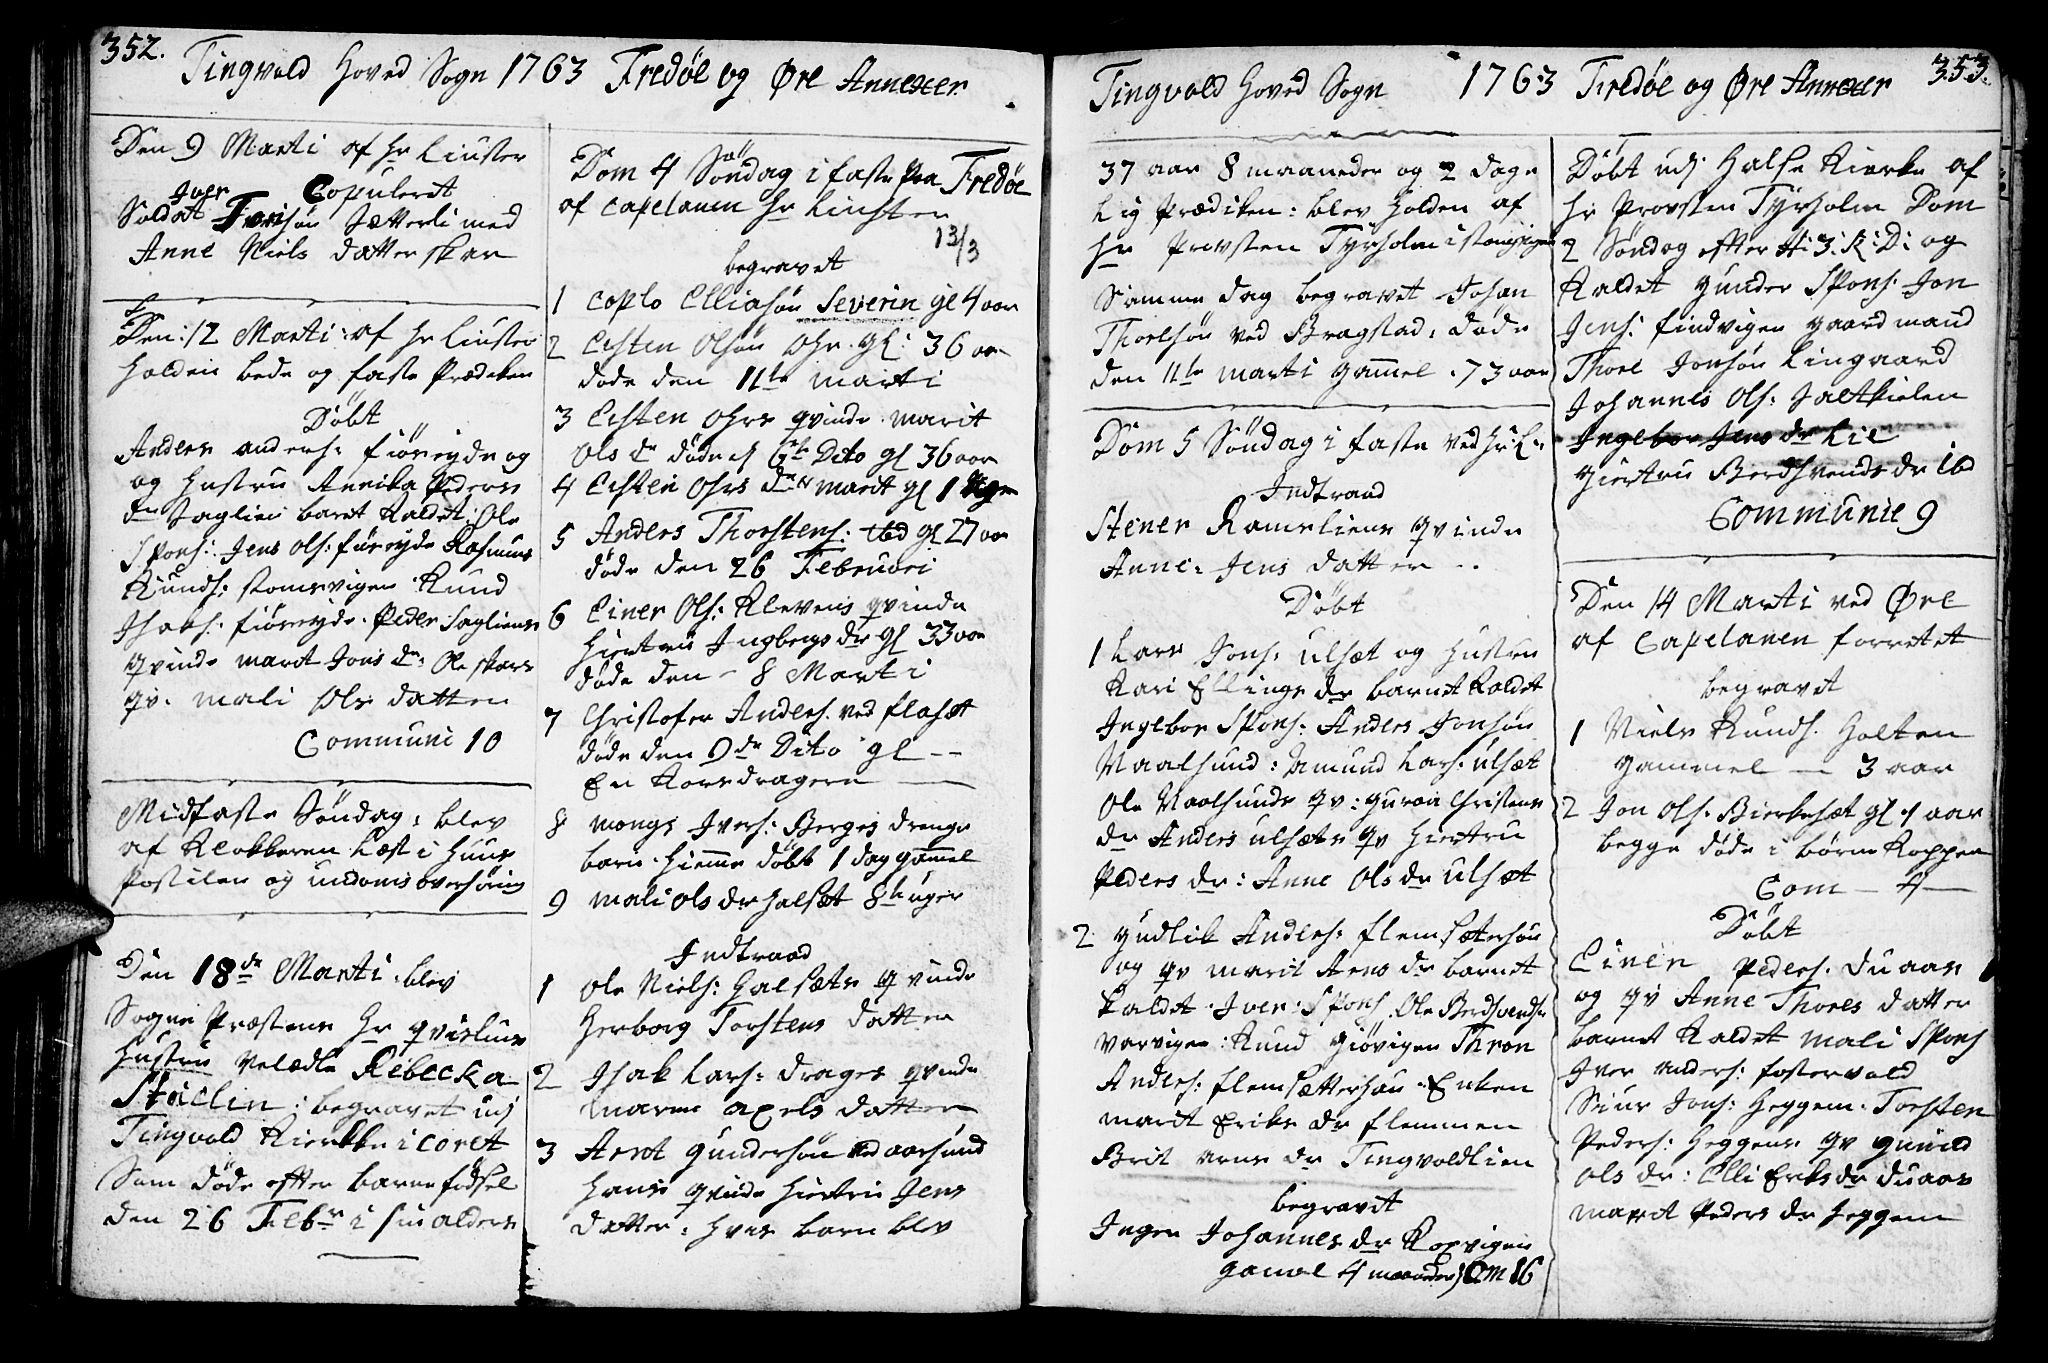 352.
Tingvold Hoved Sogn 1763 Fredøe og Øre Annexer
Den 9 Marti af Hr Liuster
Copuleret
Soldat Iver Iversøn Sætterli med
Anne Niels datter skar
Den: 12 Marti: af Hr Liuster
holden bede og faste Prædiken
Døbt
Anders anders: fiøreyde og
og Hustru Annika Peders
dr Saglien baret kaldet Ole
Spons: Jens Ols: fiøreyde Rasmus
Knuds: stomsvigen Knud
Isaks: fiøreyde. Peder Sagliens
qvinde marit Jons dr: Ole skars
qv. mali Ols datter
Communi 10
Midfaste Søndag: blev
af Klokkeren Læst i Huus
Postilen og undoms overhøring
Den 18de Marti. blev
Sogne Præstens Hr qvislius
Hustru velædle Rebecka
Stüclin: begravet udj
Tingvold Kierkke i coret
Som døde efter barne fødsel
den 26 Febr i sin alders
Dom 4 Søndag i faste paa Fredøe
af Capelanen Hr Liuster
13/3
begravet
1 coplo Elliasøn Severin gl 4 aar
2 Eisten Olsøn Ohr. gl: 36 aar
døde den 11te marti
3 Eisten Ohrs qvinde marit
Ols dr døde d 6te Dito gl 36 aar
4 Eisten Ohrs dr marit gl 1 uge
5 Anders Thorstens: ibd gl 27 aar
døde den 26 Februari
6 Einer Ols: Klevens qvinde
Hiertru Ingbergs dr gl 33 aar
døde den - 8 Marti
7 Christofer Anders. ved flasæt
døde den 9de Dito gl --
En Korsdragere
8 mongs Ivers: Berges drenge
barn. hiemme døbt 1 dag gamel
9 mali ols dr halsæt 8te uger
Indtraad
1 Ole Niels: Halsæts qvinde
Herborg Torstens datter
2 Isak Lars: drages qvinde
maren axels datter
3 Arnt Gundersøn ved aarsund
hans qvinde Hiertru Jens
datter: hvis barn blev
353.
Tingvold Hoved Sogn 1763 Fredøe og Øre Annexer
37 aar 8 maaneder og 2 dage
Lig Prædiken: blev holden af
Hr Provsten Tyrholm i stangvigen
Samme dag begravet Johan
Thoelsøn ved Bragstad: døde
den 11te marti gammel. 73 aar
Dom 5 Søndag i faste ved Hr: L:
Indtraad
Stener Rameliens qvinde
Anne: Jens datter
Døbt
1 Lars Jons: ulsæt og Hustru
Kari Ellings dr barnet kaldet
Ingebor Spons: Anders Jonsøn
Vaalsund: Amund Lars: ulsæt
Ole Vaalsunds qv: guroa Christens
dr Anders ulsæts qv Hiertru
Peders dr: Anne Ols dr ulsæt
2 gudlik Anders: flemsætersøn
og qv marit Arns dr barnet
kaldet. Iver: Spons Ole Berdsvends:
varvigen: Knud giøvigen Thron
Anders: flemsættershau. Enken
marit Eriks dr flemmen
Brit arns dr Tingvoldlien
begravet
Ingen Johannes dr Kopvigen
gamel 4 maaneder Com 16
Døbt udj Halse Kierke af
Hr Provsten Tyrholm Dom
2 Søndag efter H: 3: K: D: og
kaldet Gunder Spons. Jon
Jens: findvigen gaardmand
Thoel Jonsøn Lingaard
Johannes Ols: Saltkielen
Ingebor Jens dr Lie
Hiertru Berdsvends dr ibd
Communie 9
Den 14 Marti ved Øre
af Capelanen forretet
begravet
1 Niels Knuds. Holten
gammel - 3 aar
2 Jon Ols: Bierkesæt gl 4 aar
begge døde i børne Kopper
Com - 4 -
Døbt
Einer Peders. duaas 1
og qv Anne Thoels datter
barnet kaldet mali Spons
Iver anders: fostervold
Siur Jons: Heggem. Torsten
Peders: Heggens qv gunild
ols dr: Elli Eriks dr duaas
marit Peders dr Heggem